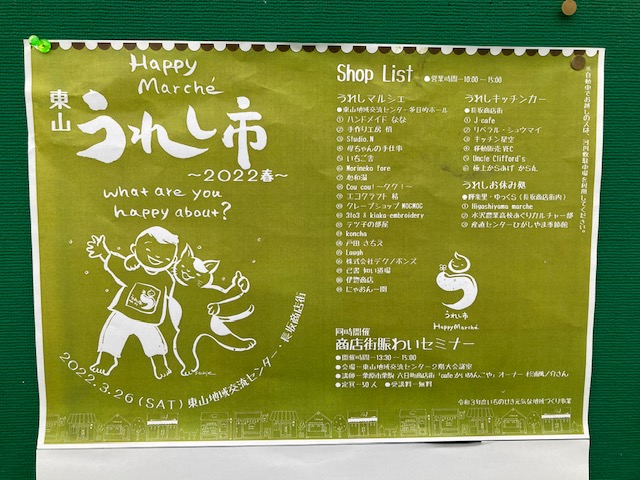 Happy
Marché
東山
うれし市
～2022春～
what are you
happy about?
2022.3.26(SAT) 東山地域交流センター・長坂商店街
Shop List ●営業時間─10:00 ─ 15:00
うれしマルシェ
●東山地域交流センター・多目的ホール
① ハンドメイド なな
② 手作り工房 悄
③ Studio.N
④ 母ちゃんの手仕事
⑤ いちご舎
⑥ Morineko fore
⑦ 心和温
⑧ Cou cou!～ククー!～
⑨ エコクラフト 結
⑩ クレープショップ MOGMOG
⑪ 3to3 & kiaka-embroidery
⑫ テツ子の部屋
⑬ koncha
⑭ 戸田 さちえ
⑮ Laugh
⑯ 株式会社デクノボンズ
⑰ 己書 如い道場
⑱ 伊惣商店
⑲ にゃおん一関
うれしキッチンカー
●長坂商店街
① J-cafe
② リベラル・シュウマイ
③ キッチン星空
④ 移動販売 VEC
⑤ Uncle Clifford's
⑥ 極上からあげ から丸
うれしお休み処
●野楽里・ゆっくら（長坂商店街内）
① Higashiyama marche
② 水沢農業高校あぐりカルチャー部
③ 産直センターひがしやま季節館
うれし市
Happy Marché
同時開催
商店街賑わいセミナー
●開催時間─13:30 ─ 15:00
●会場─東山地域交流センター2階大会議室
●定員─50人 ●受講料─無料
令和3年度いちのせき元気な地域づくり事業